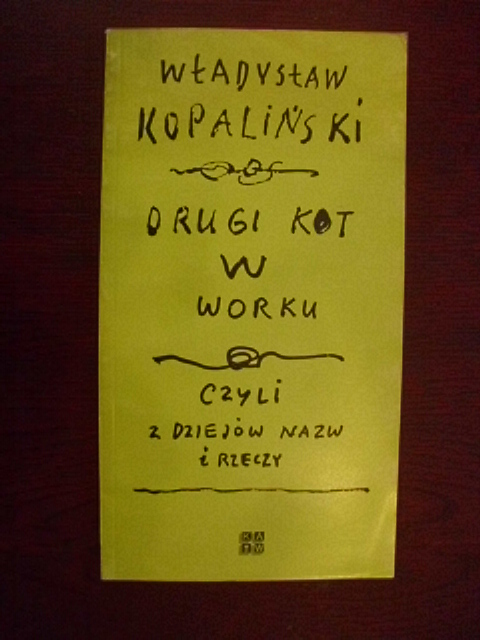 WŁADYSŁAW
KOPALIŃSKI
DRUGI KOT
W
WORKU
CZYLI
Z DZIEJÓW NAZW
i RZECZY